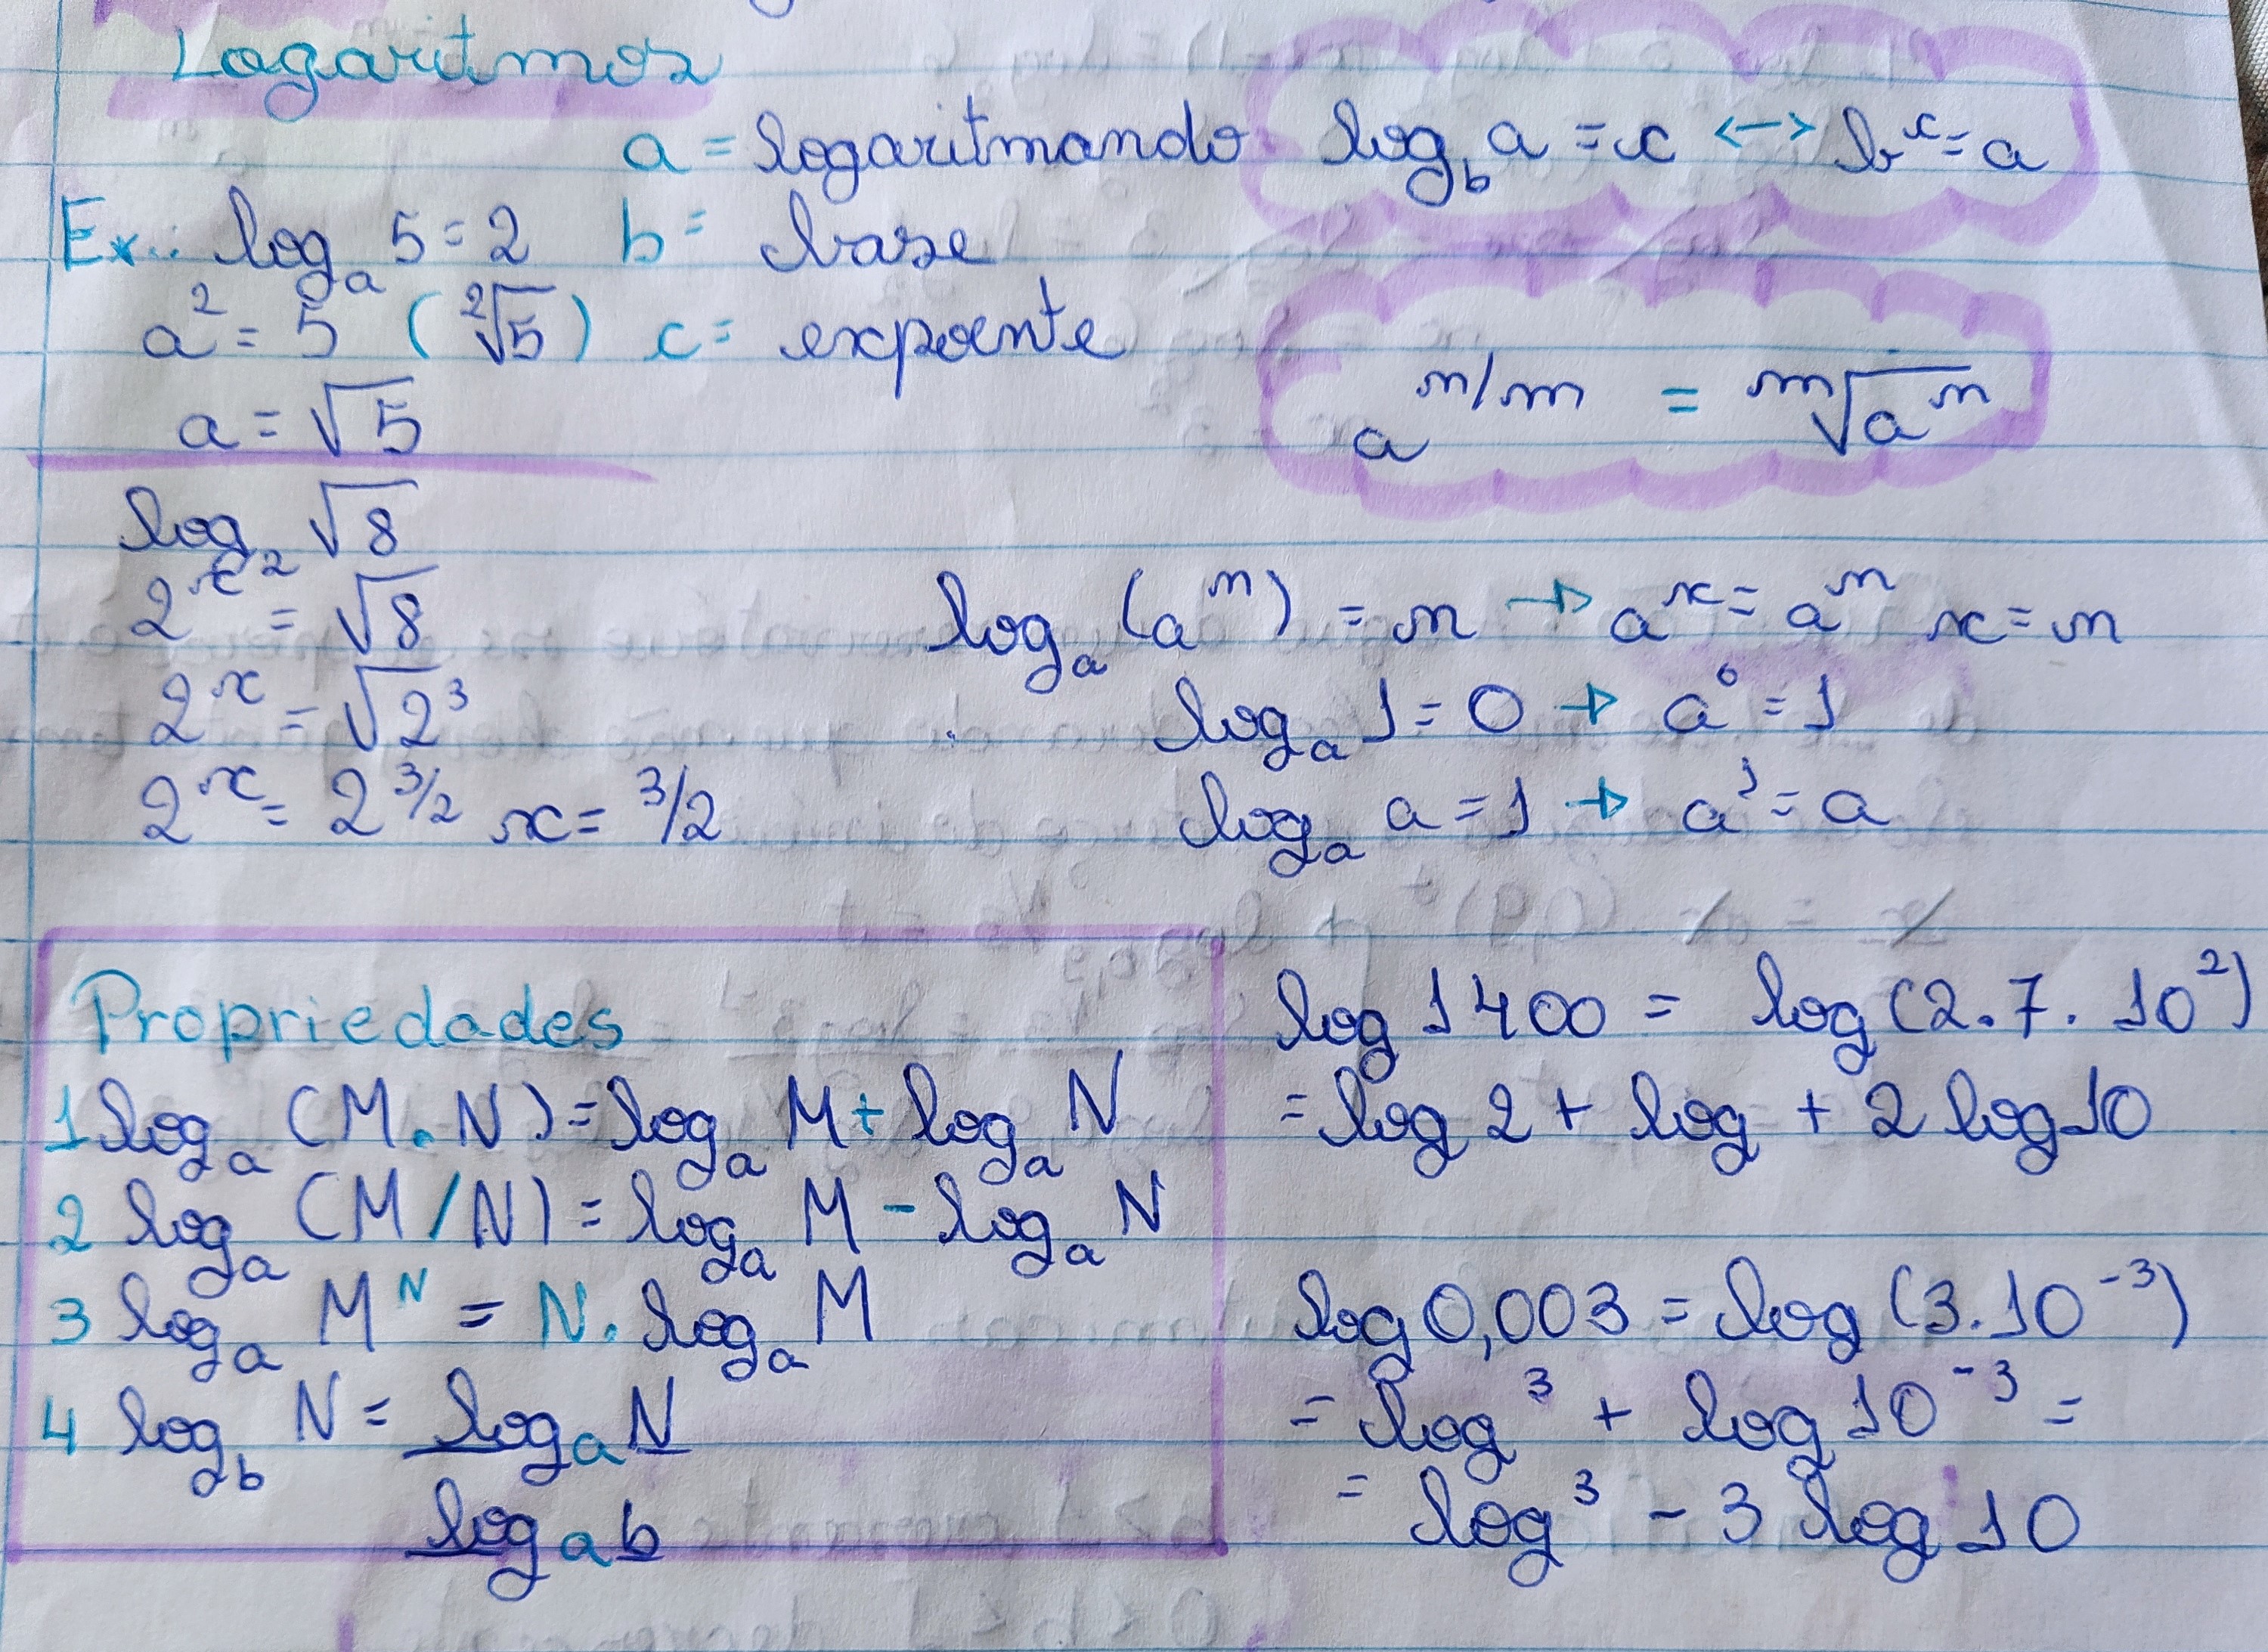 Logaritmos
a = logaritmando log_b a = c <-> b^c = a
Ex.: log_a 5 = 2 b = base
a² = 5 (²√5) c = expoente
a = √5
a^(n/m) = ᵐ√aⁿ
log₂ √8
2^x = √8
2^x = √2³
2^x = 2^(3/2) x = 3/2
log_a (a^m) = m → a^x = a^m x = m
log_a 1 = 0 → a⁰ = 1
log_a a = 1 → a¹ = a
Propriedades
1 log_a (M.N) = log_a M + log_a N
2 log_a (M/N) = log_a M - log_a N
3 log_a M^N = N. log_a M
4 log_b N = log_a N
log_a b
log 1400 = log (2.7.10²)
= log 2 + log + 2 log 10
log 0,003 = log (3.10⁻³)
= log ³ + log 10⁻³ =
= log ³ - 3 log 10